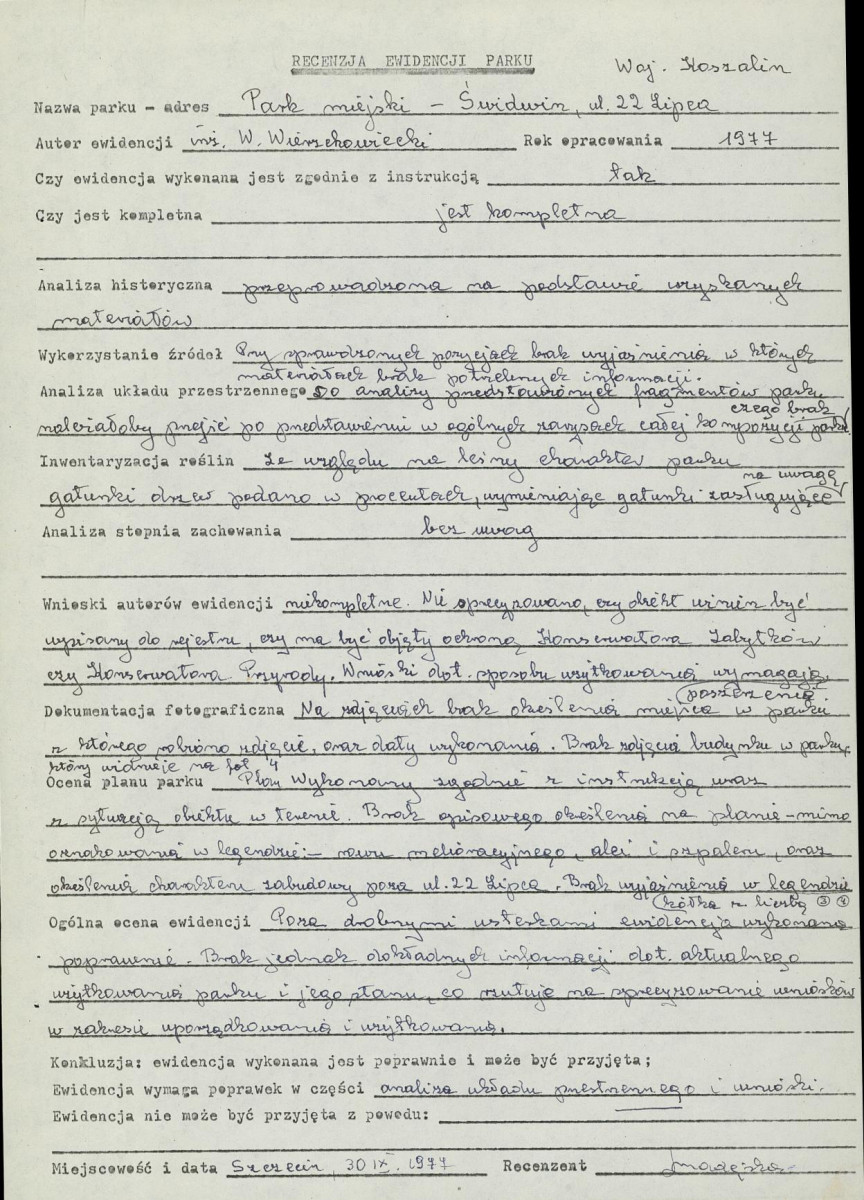 RECENZJA EWIDENCJI PARKU
Woj. Koszalin
Nazwa parku - adres Park miejski - Świdwin, ul. 22 Lipca
Autor ewidencji inż. W. Wierzchowiecki Rok opracowania 1977
Czy ewidencja wykonana jest zgodnie z instrukcją tak
Czy jest kompletna jest kompletna
Analiza historyczna przeprowadzona na podstawie uzyskanych
materiałów
Wykorzystanie źródeł Przy sprawdzonych pozycjach brak wyjaśnienia w których
materiałach brak potrzebnych informacji.
Analiza układu przestrzennego Do analizy przedstawionych fragmentów parku
należałoby przejść po przedstawieniu w ogólnych zarysach całej kompozycji parku
czego brak
Inwentaryzacja roślin Ze względu na leśny charakter parku
gatunki drzew podano w procentach, wymieniając gatunki zasługujące
na uwagę
Analiza stopnia zachowania bez uwag
Wnioski autorów ewidencji niekompletne. Nie sprecyzowano, czy obiekt winien być
wpisany do rejestru, czy ma być objęty ochroną Konserwatora Zabytków
czy Konserwatora Przyrody. Wnioski dot. sposobu użytkowania wymagają
poszerzenia.
Dokumentacja fotograficzna Na zdjęciach brak określenia miejsca w parku
z którego robiono zdjęcie, oraz daty wykonania. Brak zdjęcia budynku w parku,
który widnieje na fot. 4
Ocena planu parku Plan wykonany zgodnie z instrukcją wraz
z sytuacją obiektu w terenie. Brak opisowego określenia na planie - mimo
oznakowania w legendzie: - rowu melioracyjnego, alei i szpaleru, oraz
określenia charakteru zabudowy poza ul. 22 Lipca. Brak wyjaśnienia w legendzie
kółka z liczbą ③ ④
Ogólna ocena ewidencji Poza drobnymi usterkami ewidencja wykonana
poprawnie. Brak jednak dokładnych informacji dot. aktualnego
użytkowania parku i jego stanu, co rzutuje na sprecyzowanie wniosków
w zakresie uporządkowania i użytkowania.
Konkluzja: ewidencja wykonana jest poprawnie i może być przyjęta;
Ewidencja wymaga poprawek w części analiza układu przestrzennego i wnioski.
Ewidencja nie może być przyjęta z powodu:
Miejscowość i data Szczecin, 30 IX. 1977 Recenzent